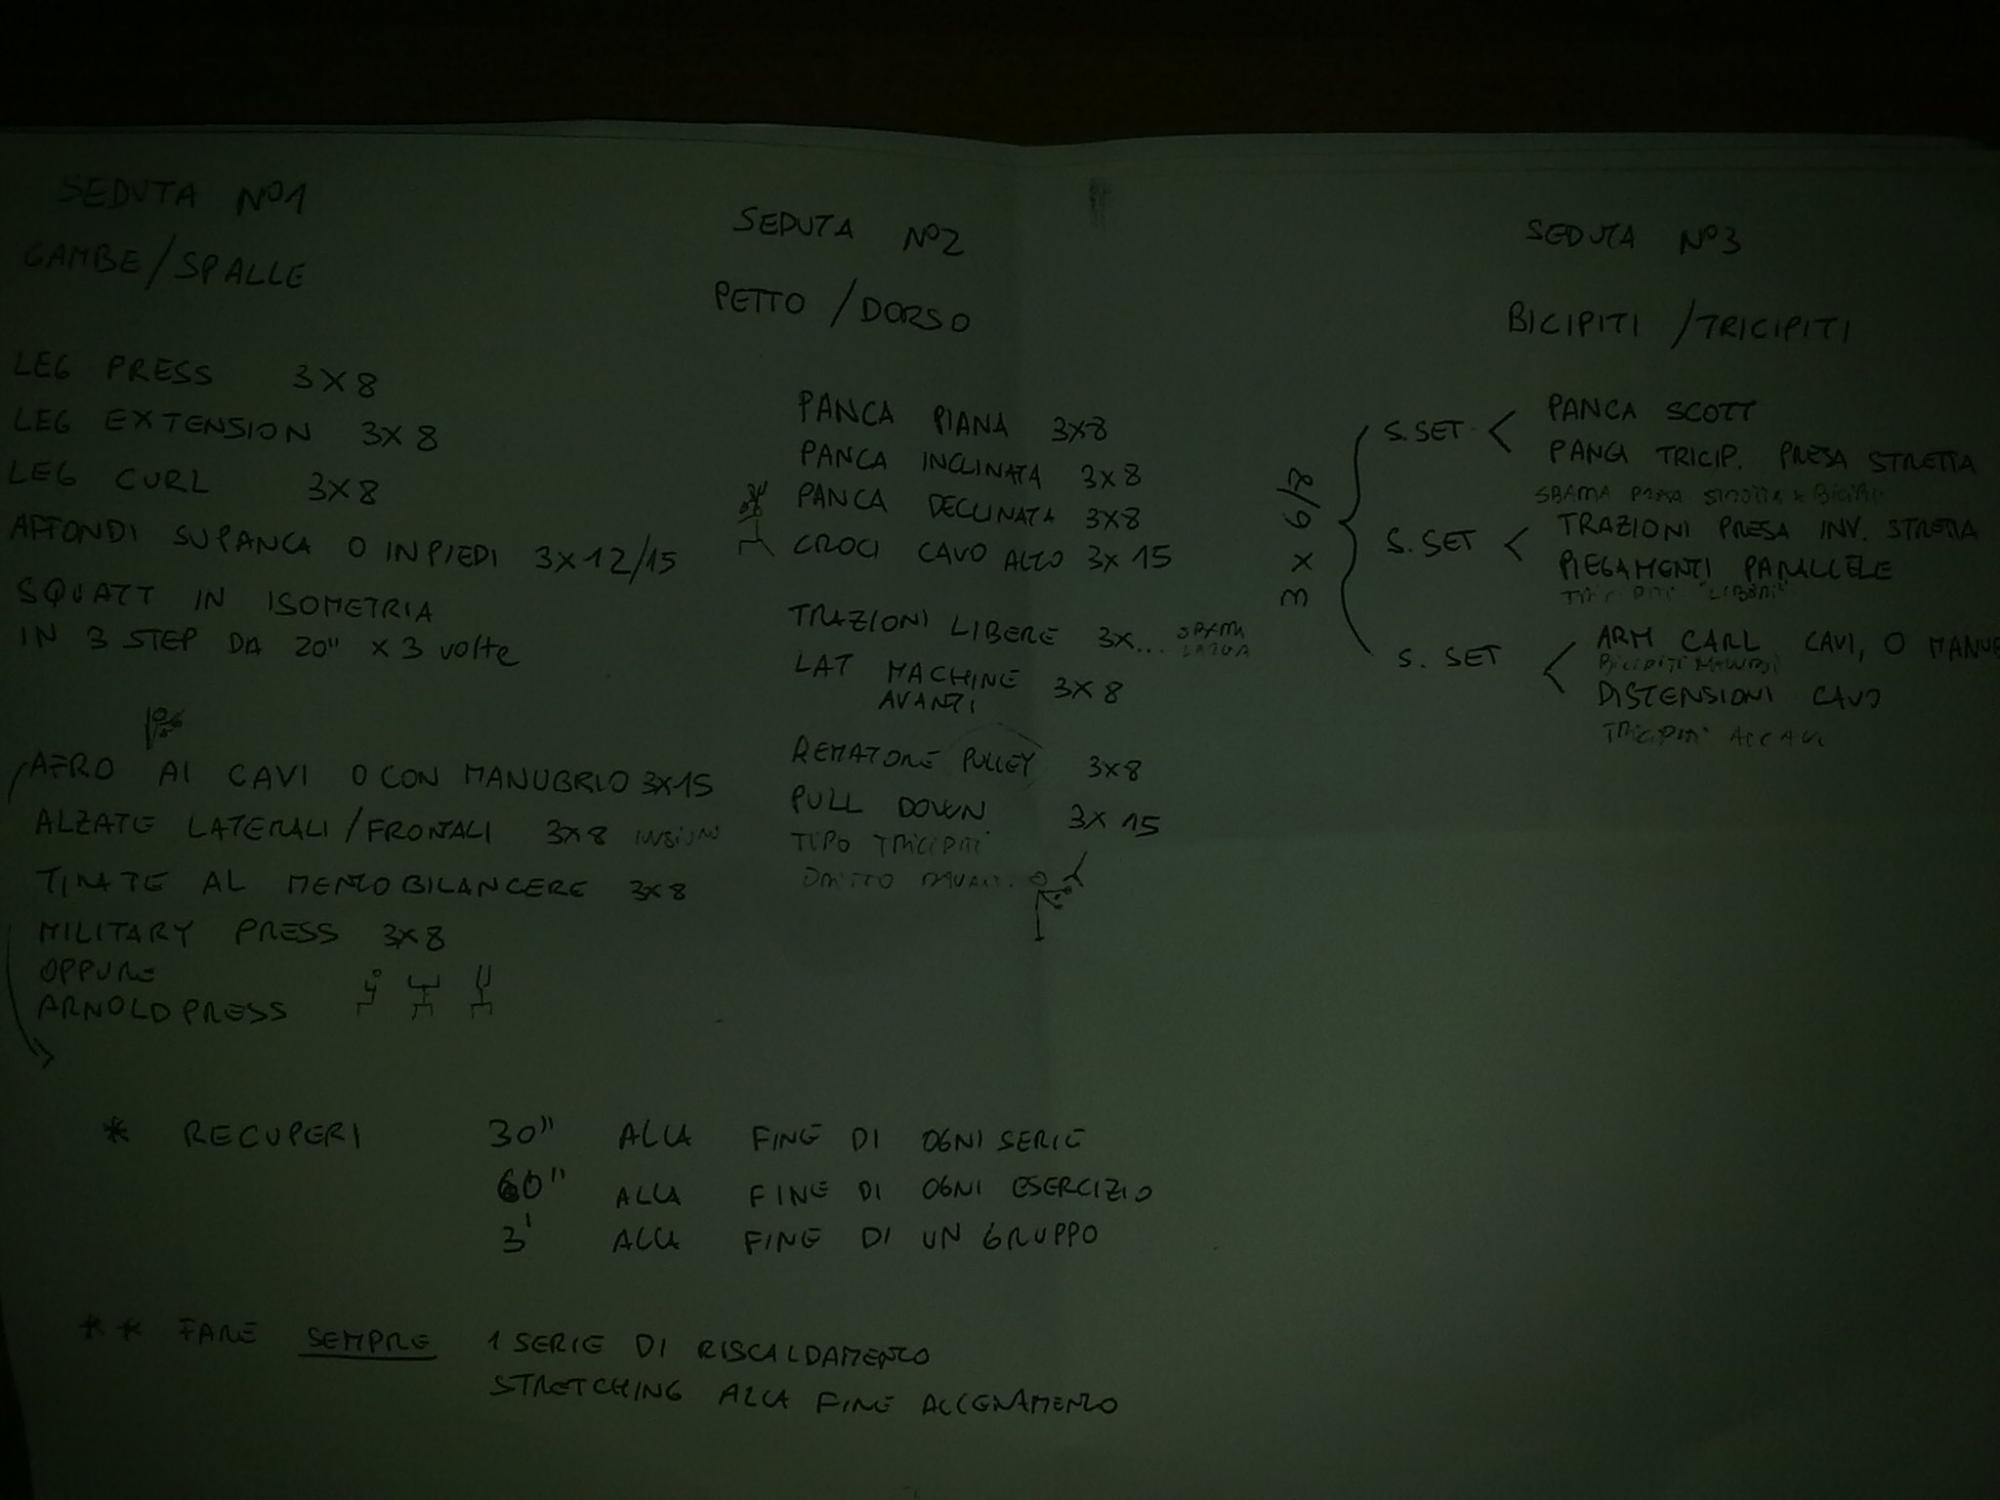 SEDUTA Nº1
GAMBE/SPALLE
LEG PRESS 3X8
LEG EXTENSION 3X8
LEG CURL 3X8
AFFONDI SU PANCA O IN PIEDI 3X12/15
SQUATT IN ISOMETRIA
IN 3 STEP DA 20" X 3 volte
AERO AI CAVI O CON MANUBRIO 3X15
ALZATE LATERALI/FRONTALI 3X8
TIRATE AL MENTO BILANCERE 3X8
MILITARY PRESS 3X8
OPPURE
ARNOLD PRESS
SEDUTA Nº2
PETTO/DORSO
PANCA PIANA 3X8
PANCA INCLINATA 3X8
PANCA DECLINATA 3X8
CROCI CAVO ALTO 3X15
TRAZIONI LIBERE 3X... SBARRA
LARGA
LAT MACHINE 3X8
AVANTI
REMATORE PULLEY 3X8
PULL DOWN 3X15
TIPO TRICIPITI
DRITTO
SEDUTA Nº3
BICIPITI/TRICIPITI
3 X 6/8
S.SET < PANCA SCOTT
PANCA TRICIP. PRESA STRETTA
SBARRA PRESA STRETTA X BICIPITI
S.SET < TRAZIONI PRESA INV. STRETTA
PIEGAMENTI PARALLELE
"LIBERI"
S. SET < ARM CARL CAVI, O
BICIPITI MANUBRI
DISTENSIONI CAVO
TRICIPITI AI CAVI
* RECUPERI 30" ALLA FINE DI OGNI SERIE
60" ALLA FINE DI OGNI ESERCIZIO
3' ALLA FINE DI UN GRUPPO
** FARE SEMPRE 1 SERIE DI RISCALDAMENTO
STRETCHING ALLA FINE ALLENAMENTO